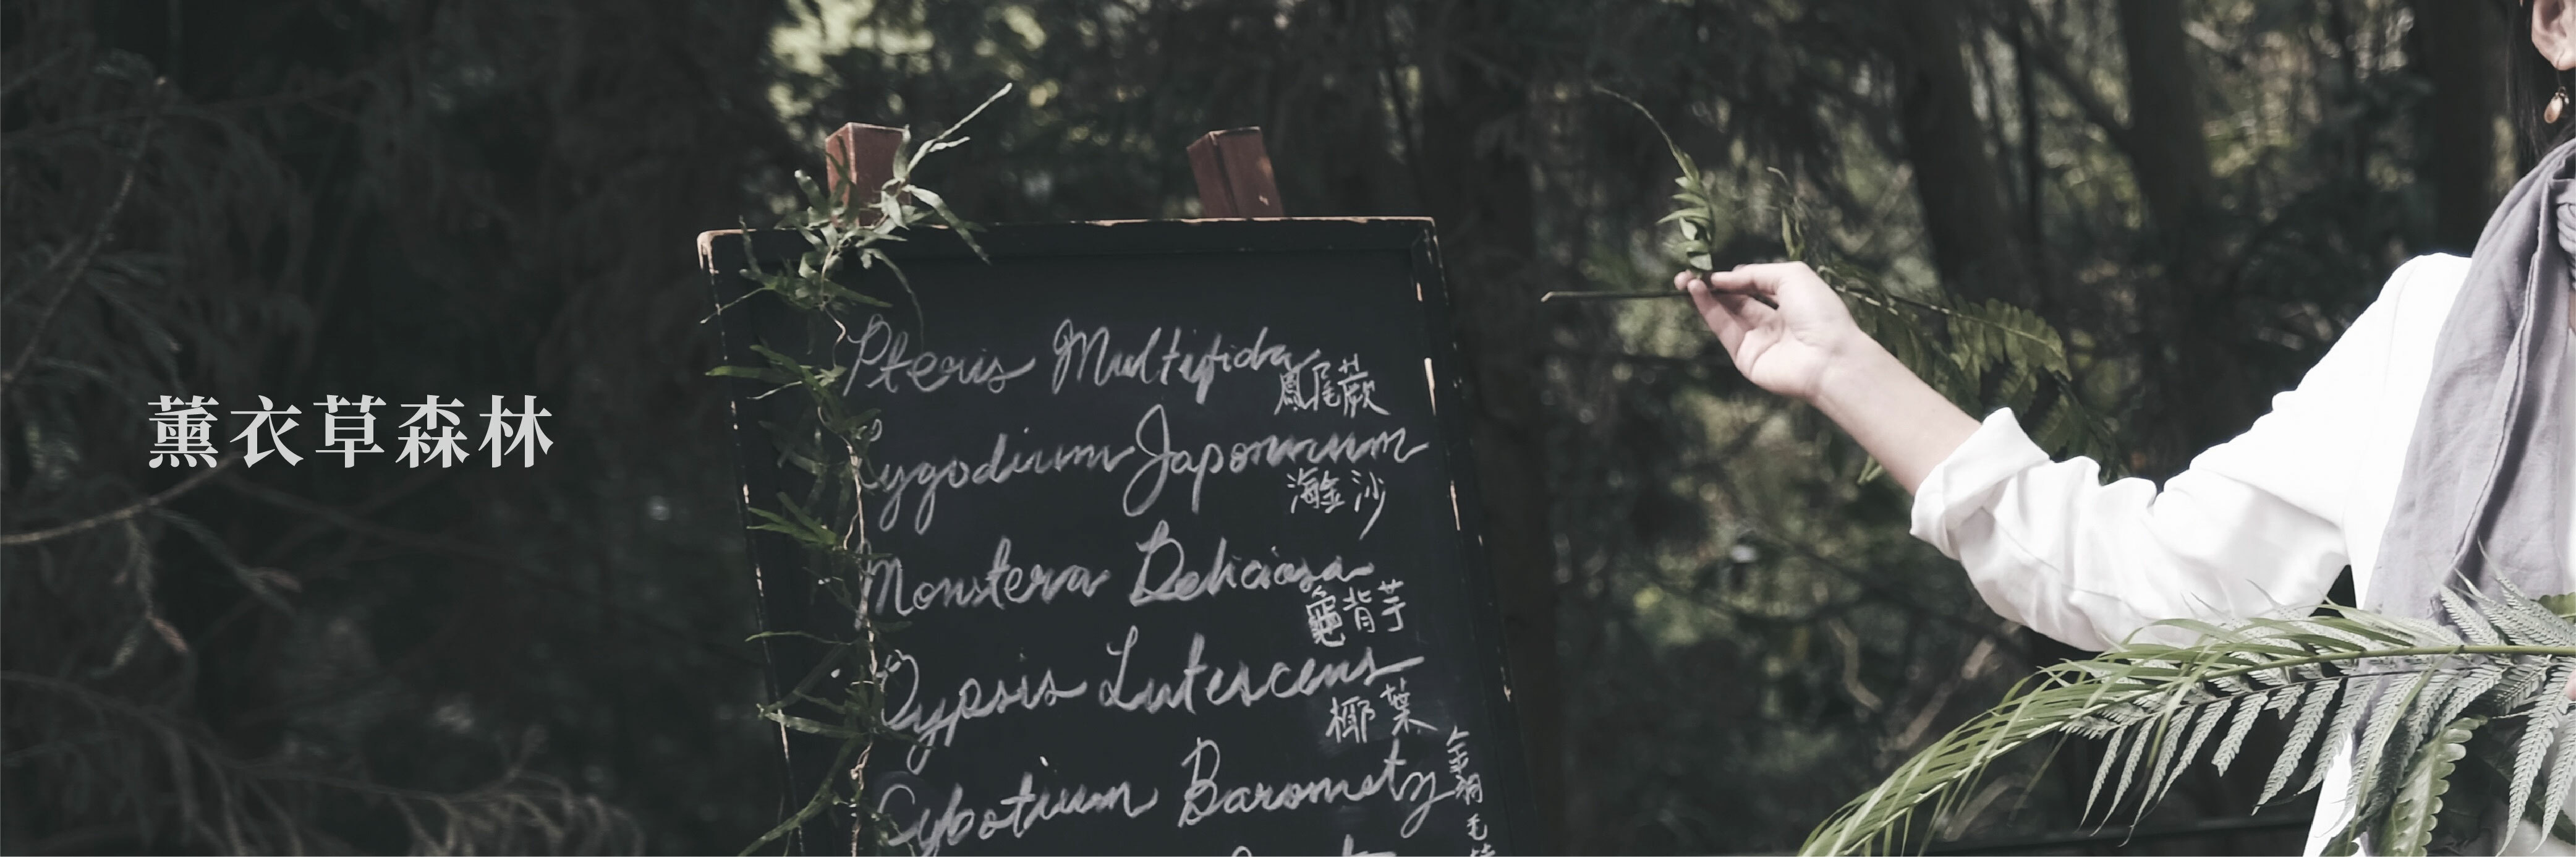 薰衣草森林
Pteris Multifida
鳳尾蕨
Lygodium Japonicum
海金沙
Monstera Deliciosa
龜背芋
Dypsis Lutescens
椰葉
Cybotium Barometz
金狗毛